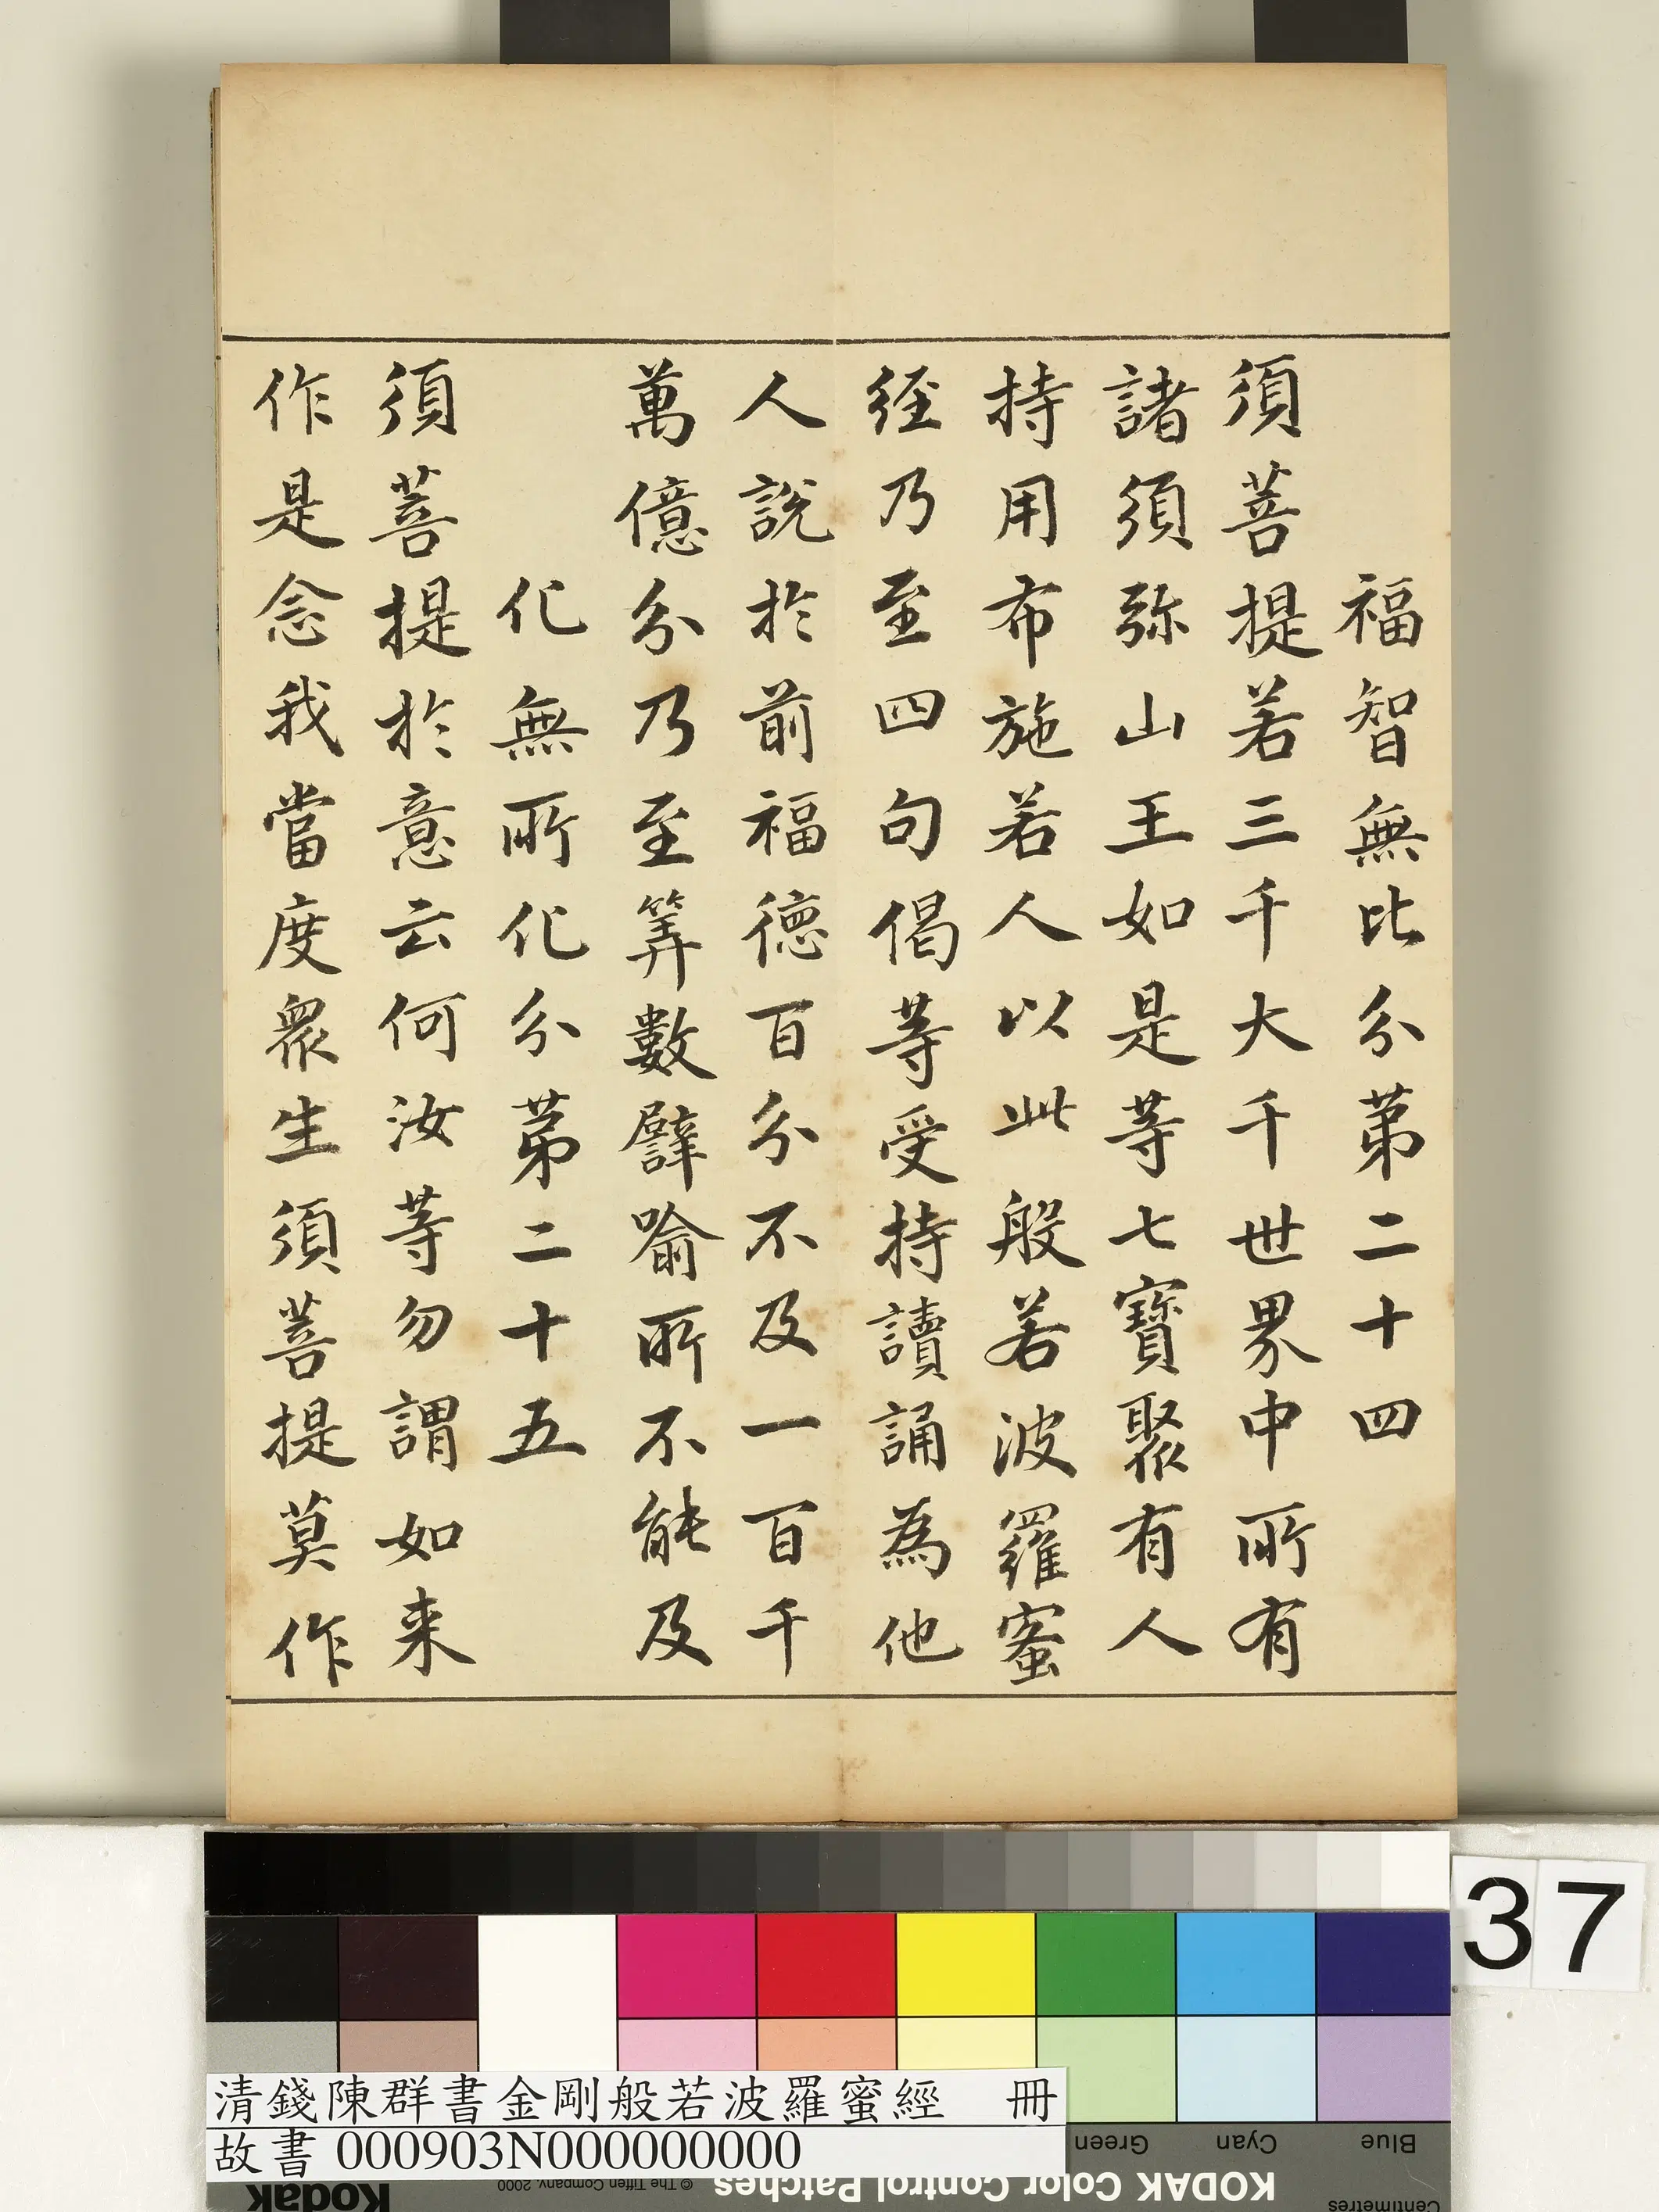 福智無比分第二十四
須菩提若三千大千世界中所有
諸須弥山王如是等七寶聚有人
持用布施若人以此般若波羅蜜
経乃至四句偈等受持讀誦為他
人說於前福德百分不及一百千
萬億分乃至筭數譬喻所不能及
化無所化分第二十五
須菩提於意云何汝等勿謂如来
作是念我當度眾生須菩提莫作
37
清錢陳群書金剛般若波羅蜜經 冊
故書 000903N000000000
Green
Cyan
Blue
KODAK Color Control Patches
© The Tiffen Company, 2000
Kodak
Centimetres